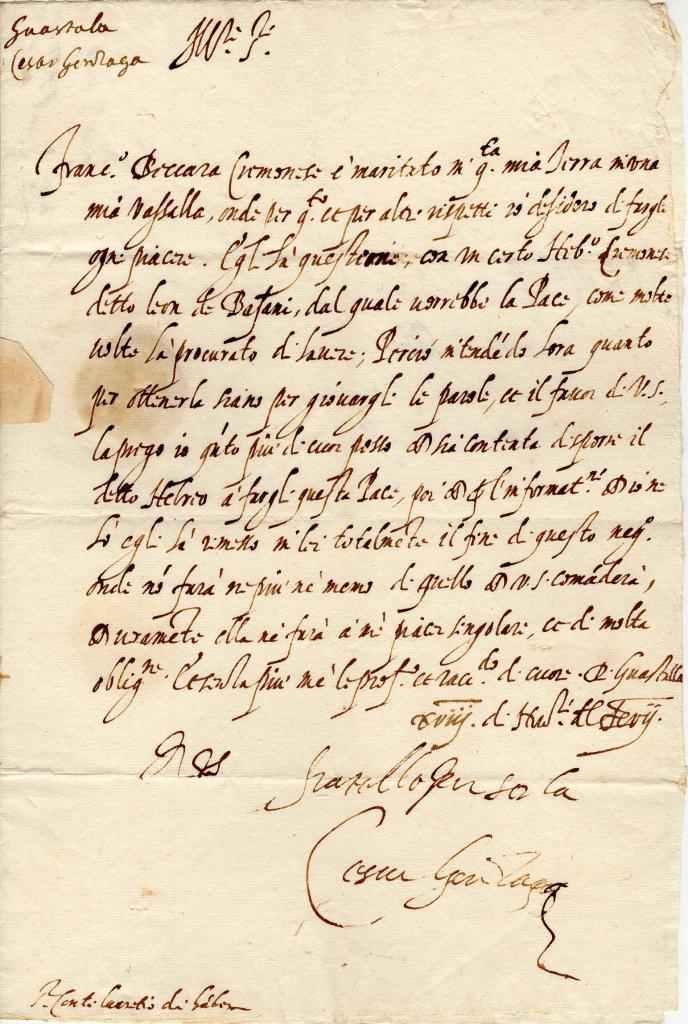 Guastala
Cesar Gonzaga
Ill.re S.re
Franc.o Beccara Cremonese è maritato in q.ta mià Terra in una
mià Vassalla, onde per q.to et per altri rispetti iò desidero di fargli
ogni piacere. Egli hà questione, con un certo Heb.o Cremonese
detto leon de Basani, dal quale vorrebbe la Pace, come molte
volte hà procurato di havere; Perciò intendēdo hora quanto
per ottenerla siano per giovargli le parole, et il favor di V.S.,
la prego io q̃nto più di cuor posso sia contenta disporre il
detto Hebreo à fargli questa Pace, poi l'informat.ne io ne
hò egli hà rimesso in lei totalmēte il fine di questo neg.o
onde nō farà ne più nè meno di quello V.S. comāderà,
mēte ella ne farà à mè piacer singolare, et di molta
oblig.ne Et senza più me le prof.o et racc.do di cuore. Di Guastalla
xviij. di
D V S
fratello per ser la
Cesare Gonzaga
S. Conte di